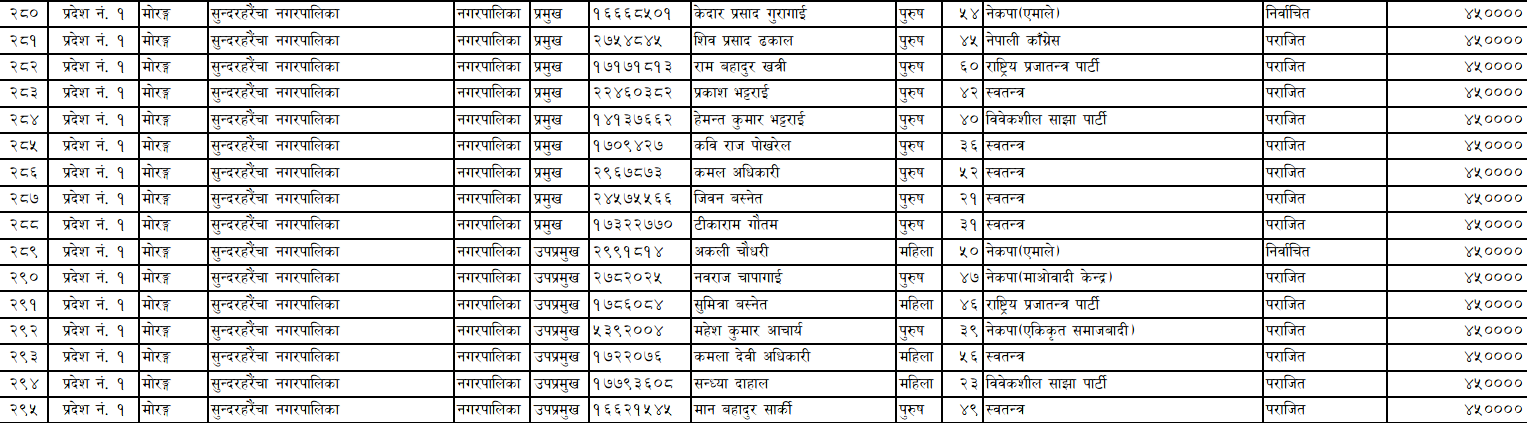 २८० प्रदेश नं. १ मोरङ्ग सुन्दरहरैंचा नगरपालिका नगरपालिका प्रमुख १६६६८५०१ केदार प्रसाद गुरागाई पुरुष ५४ नेकपा(एमाले) निर्वाचित ४५००००
२८१ प्रदेश नं. १ मोरङ्ग सुन्दरहरैंचा नगरपालिका नगरपालिका प्रमुख २७५४८४५ शिव प्रसाद ढकाल पुरुष ४५ नेपाली काँग्रेस पराजित ४५००००
२८२ प्रदेश नं. १ मोरङ्ग सुन्दरहरैंचा नगरपालिका नगरपालिका प्रमुख १७१७१८१३ राम बहादुर खत्री पुरुष ६० राष्ट्रिय प्रजातन्त्र पार्टी पराजित ४५००००
२८३ प्रदेश नं. १ मोरङ्ग सुन्दरहरैंचा नगरपालिका नगरपालिका प्रमुख २२४६०३८२ प्रकाश भट्टराई पुरुष ४२ स्वतन्त्र पराजित ४५००००
२८४ प्रदेश नं. १ मोरङ्ग सुन्दरहरैंचा नगरपालिका नगरपालिका प्रमुख १४१३७६६२ हेमन्त कुमार भट्टराई पुरुष ४० विवेकशील साझा पार्टी पराजित ४५००००
२८५ प्रदेश नं. १ मोरङ्ग सुन्दरहरैंचा नगरपालिका नगरपालिका प्रमुख १७०९४२७ कवि राज पोखरेल पुरुष ३६ स्वतन्त्र पराजित ४५००००
२८६ प्रदेश नं. १ मोरङ्ग सुन्दरहरैंचा नगरपालिका नगरपालिका प्रमुख २९६७८७३ कमल अधिकारी पुरुष ५२ स्वतन्त्र पराजित ४५००००
२८७ प्रदेश नं. १ मोरङ्ग सुन्दरहरैंचा नगरपालिका नगरपालिका प्रमुख २४५७५५६६ जिवन बस्नेत पुरुष २१ स्वतन्त्र पराजित ४५००००
२८८ प्रदेश नं. १ मोरङ्ग सुन्दरहरैंचा नगरपालिका नगरपालिका प्रमुख १७३२२७७० टीकाराम गौतम पुरुष ३१ स्वतन्त्र पराजित ४५००००
२८९ प्रदेश नं. १ मोरङ्ग सुन्दरहरैंचा नगरपालिका नगरपालिका उपप्रमुख २९९१८१४ अकली चौधरी महिला ५० नेकपा(एमाले) निर्वाचित ४५००००
२९० प्रदेश नं. १ मोरङ्ग सुन्दरहरैंचा नगरपालिका नगरपालिका उपप्रमुख २७८२०२५ नवराज चापागाई पुरुष ४७ नेकपा(माओवादी केन्द्र) पराजित ४५००००
२९१ प्रदेश नं. १ मोरङ्ग सुन्दरहरैंचा नगरपालिका नगरपालिका उपप्रमुख १७८६०८४ सुमित्रा बस्नेत महिला ४६ राष्ट्रिय प्रजातन्त्र पार्टी पराजित ४५००००
२९२ प्रदेश नं. १ मोरङ्ग सुन्दरहरैंचा नगरपालिका नगरपालिका उपप्रमुख ५३९२००४ महेश कुमार आचार्य पुरुष ३९ नेकपा(एकिकृत समाजबादी) पराजित ४५००००
२९३ प्रदेश नं. १ मोरङ्ग सुन्दरहरैंचा नगरपालिका नगरपालिका उपप्रमुख १७२२०७६ कमला देवी अधिकारी महिला ५६ स्वतन्त्र पराजित ४५००००
२९४ प्रदेश नं. १ मोरङ्ग सुन्दरहरैंचा नगरपालिका नगरपालिका उपप्रमुख १७७९३६०८ सन्ध्या दाहाल महिला २३ विवेकशील साझा पार्टी पराजित ४५००००
२९५ प्रदेश नं. १ मोरङ्ग सुन्दरहरैंचा नगरपालिका नगरपालिका उपप्रमुख १६६२१५४५ मान बहादुर सार्की पुरुष ४९ स्वतन्त्र पराजित ४५००००